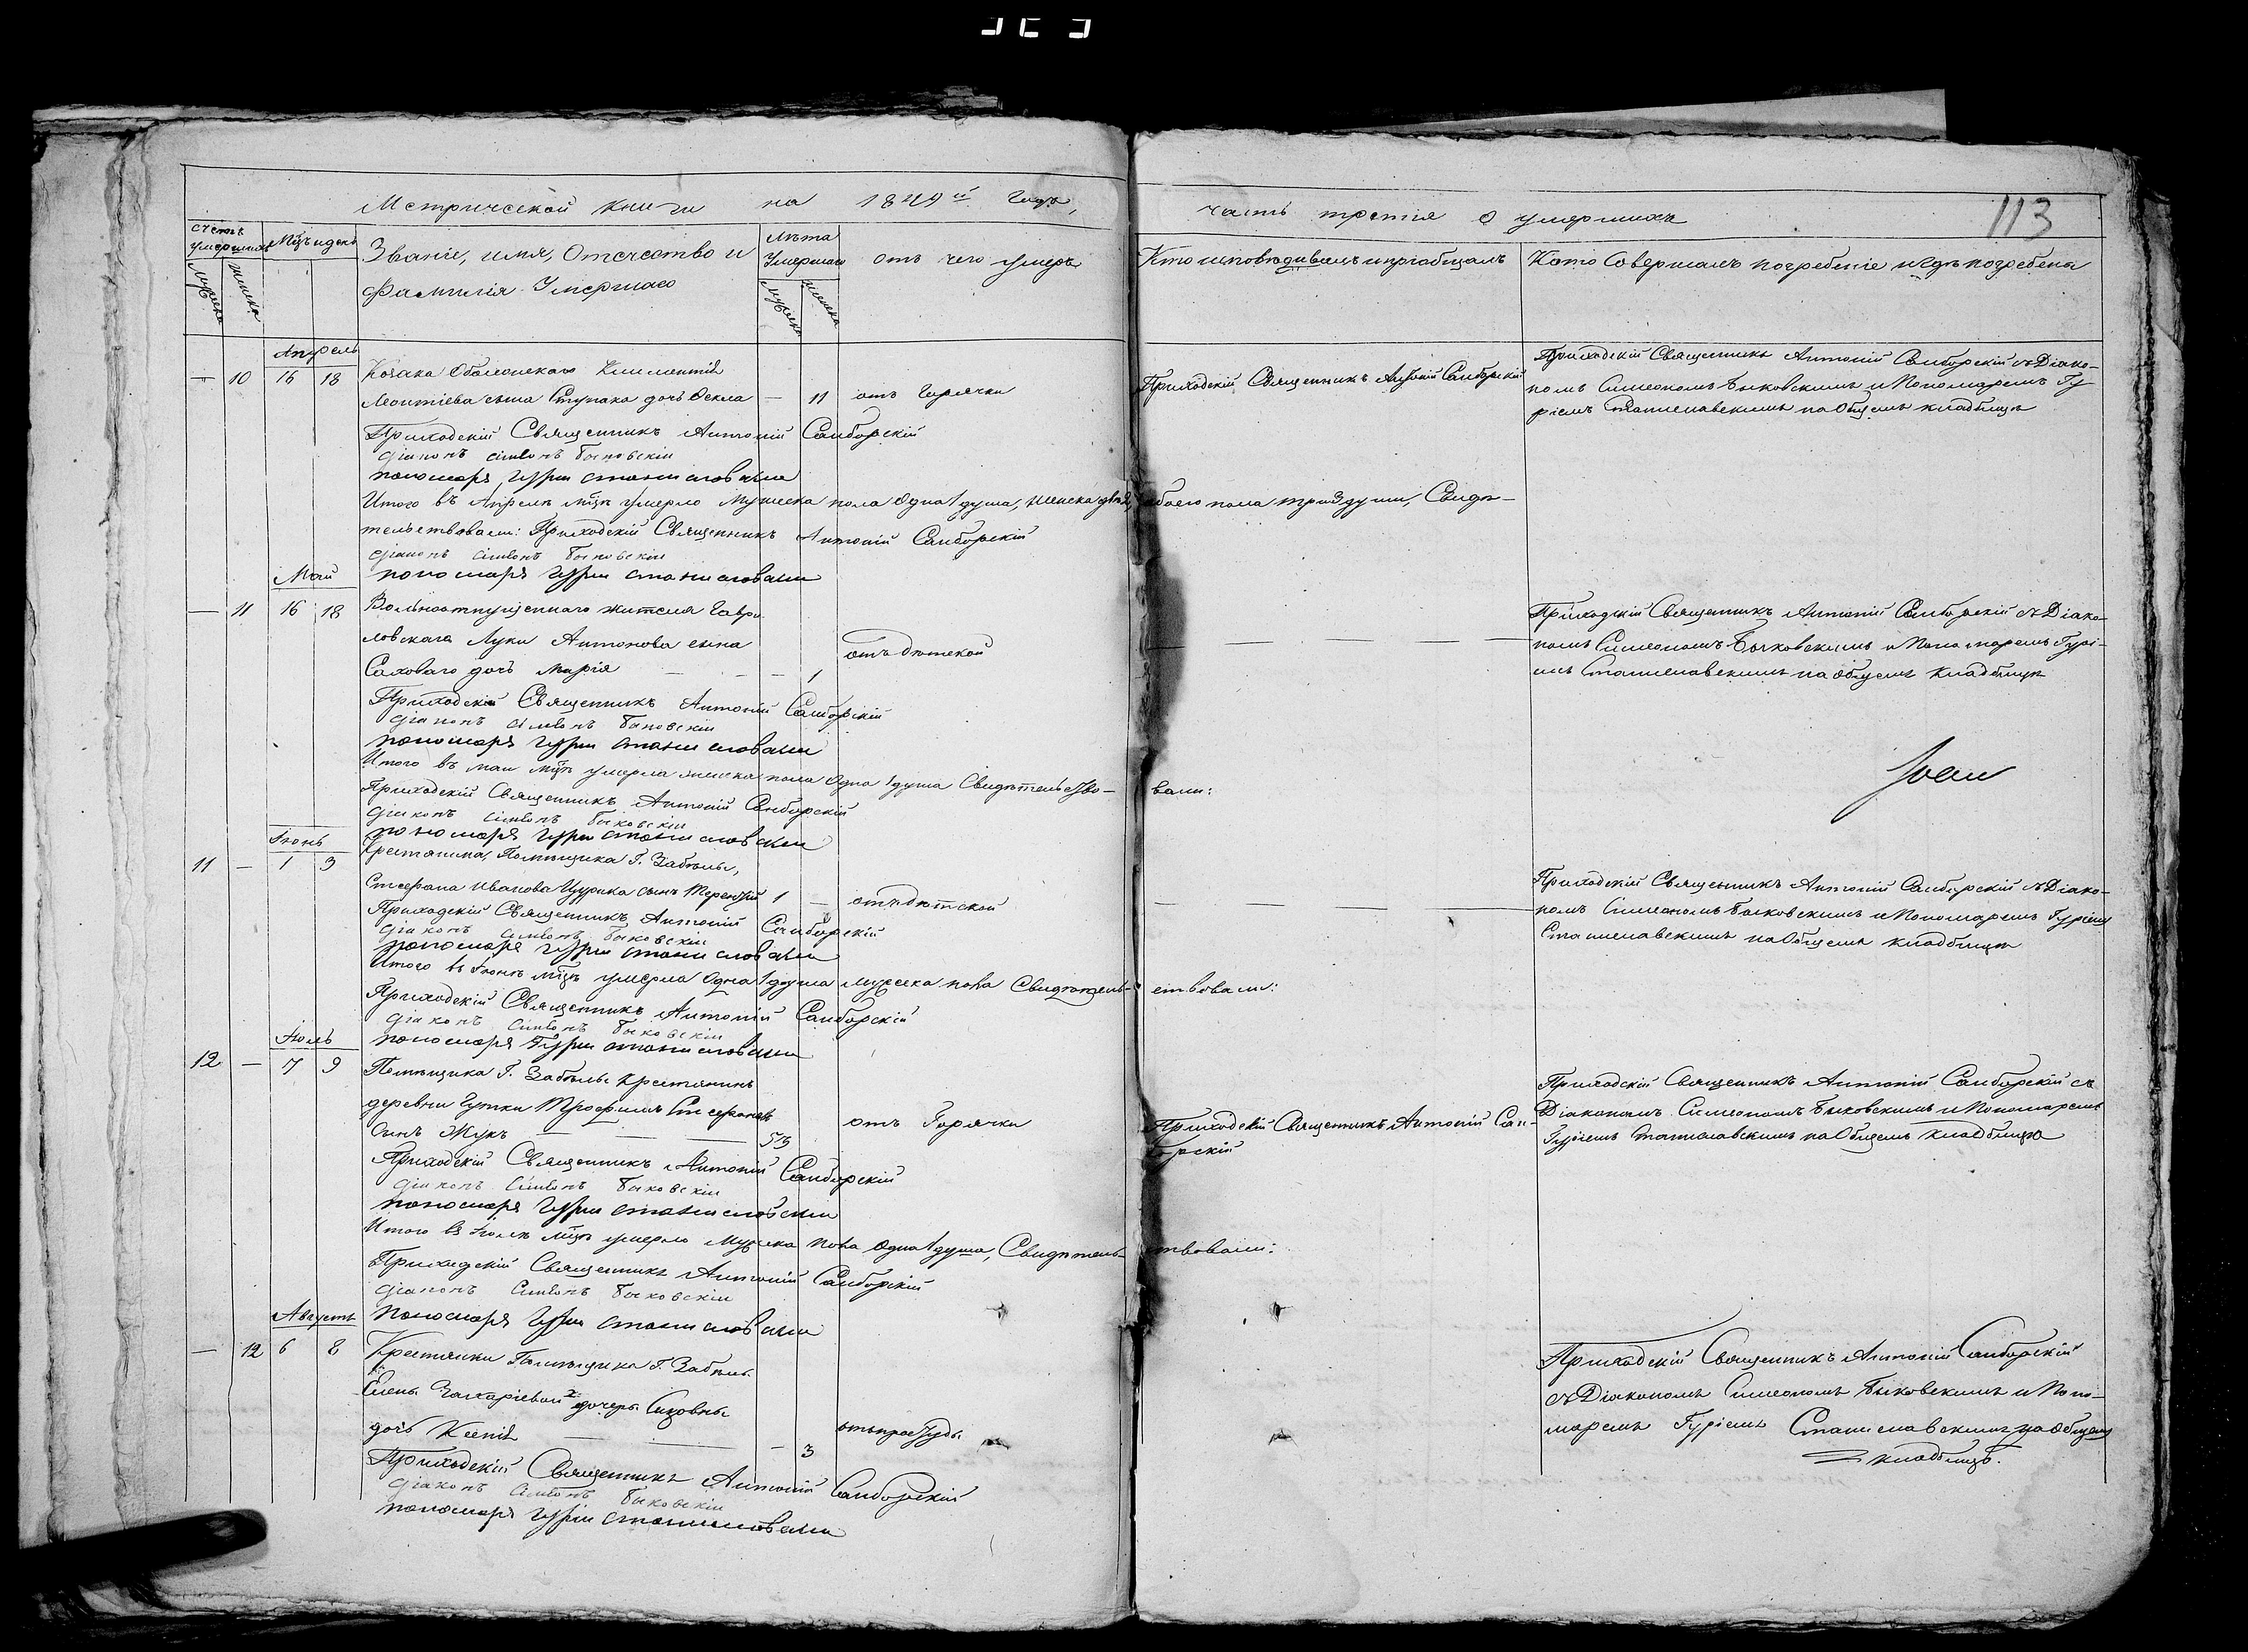 Метрической книги на 1849й годъ,
часть третія о умершихъ
113
Счетъ умершихъ
Мцъ и день
Званіе, имя, Отечество и
фамилія Умершаго
Лѣта Умершаго
отъ чего умеръ
Кто исповѣдивалъ и пріобщалъ
Кто Совершалъ погребеніе и гдѣ погребены
мужеска
женска
мужеска
женска
Апрель
— 10 16 18
Козака Оболонскаго Климентія
Леонтіева сына Ступака дочь Ѳекла — 11 отъ Горячки
Приходскій Священникъ Антоній Самборскій
Приходскій Священникъ Антоній Самборскій съ Діако-
номъ Симеономъ Быковскимъ и Пономаремъ Гу
ріемъ Станиславскимъ на Общемъ кладбищѣ
Приходскій Священникъ Антоній Самборскій
Діаконъ Симеонъ Быковскій
пономарь Гурій Станиславскій
Итого въ Апрелѣ мцѣ умерло Мужеска пола одна 1 душа, женска двѣ 2, обоего пола три 3 души, Свидѣ-
тельствовали: Приходскій Священникъ Антоній Самборскій
Діаконъ Симеонъ Быковскій
пономарь Гурій Станиславскій
Май
— 11 16 18
Вольноотпущеннаго жителя Гаври
ловскаго Луки Антонова сына
Саховаго дочь Марія — — — 1
отъ дѣтской
Приходскій Священникъ Антоній Самборскій съ Діако-
номъ Симеономъ Быковскимъ и Пономаремъ Гурі-
емъ Станиславскимъ на общемъ кладбищѣ
Приходскій Священникъ Антоній Самборскій
Діаконъ Симеонъ Быковскій
пономарь Гурій Станиславскій
Итого въ маи мцѣ умерла женска пола Одна 1 душа Свидѣтельство-вали:
Приходскій Священникъ Антоній Самборскій
Діаконъ Симеонъ Быковскій
пономарь Гурій Станиславскій
Іюнь
11 — 1 3
Крестянина, Помѣщика Г. Забѣлы,
Стефана Иванова Цурика сынъ Терентій 1 — отъ дѣтской
Приходскій Священникъ Антоній Самборскій съ Діако-
номъ Симеономъ Быковскимъ и Пономаремъ Гуріемъ
Станиславскимъ на Общемъ кладбищѣ
Приходскій Священникъ Антоній Самборскій
Діаконъ Симеонъ Быковскій
пономарь Гурій Станиславскій
Итого въ Іюнѣ мцѣ умерла Одна 1 душа мужеска пола Свидѣтель-ствовали:
Приходскій Священникъ Антоній Самборскій
Діаконъ Симеонъ Быковскій
пономарь Гурій Станиславскій
Іюль
12 — 7 9
Помѣщика Г. Забѣлы Крестянинъ
деревни Гутки Трофимъ Стефановъ
Сынъ Жукъ — — — 53
отъ Горячки
Приходскій Священникъ Антоній Сам-
борскій
Приходскій Священникъ Антоній Самборскій съ
Діакономъ Симеономъ Быковскимъ и Пономаремъ
Гуріемъ Станиславскимъ на Общемъ кладбищѣ
Приходскій Священникъ Антоній Самборскій
Діаконъ Симеонъ Быковскій
пономарь Гурій Станиславскій
Итого въ Іюлѣ мцѣ умерло Мужска пола одна 1 душа, Свидѣтель-ствовали:
Приходскій Священникъ Антоній Самборскій
Діаконъ Симеонъ Быковскій
пономарь Гурій Станиславскій
Августъ
— 12 6 8
Крестянки Помѣщика Г. Забѣлы
Елены Захаріевой дочери
дочь Ксенія — — — 3
отъ простуды
Приходскій Священникъ Антоній Самборскій
съ Діакономъ Симеономъ Быковскимъ и Поно-
маремъ Гуріемъ Станиславскимъ на общемъ
кладбищѣ.
Приходскій Священникъ Антоній Самборскій
Діаконъ Симеонъ Быковскій
пономарь Гурій Станиславскій